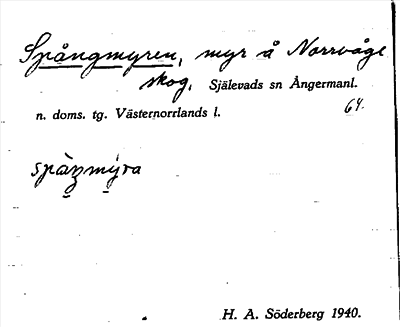 Spångmyren, myr å Norrvåge
skog, Själevads sn Ångermanl.
n. doms. tg. Västernorrlands l. 64.
spàŋmy̆ra
H. A. Söderberg 1940.